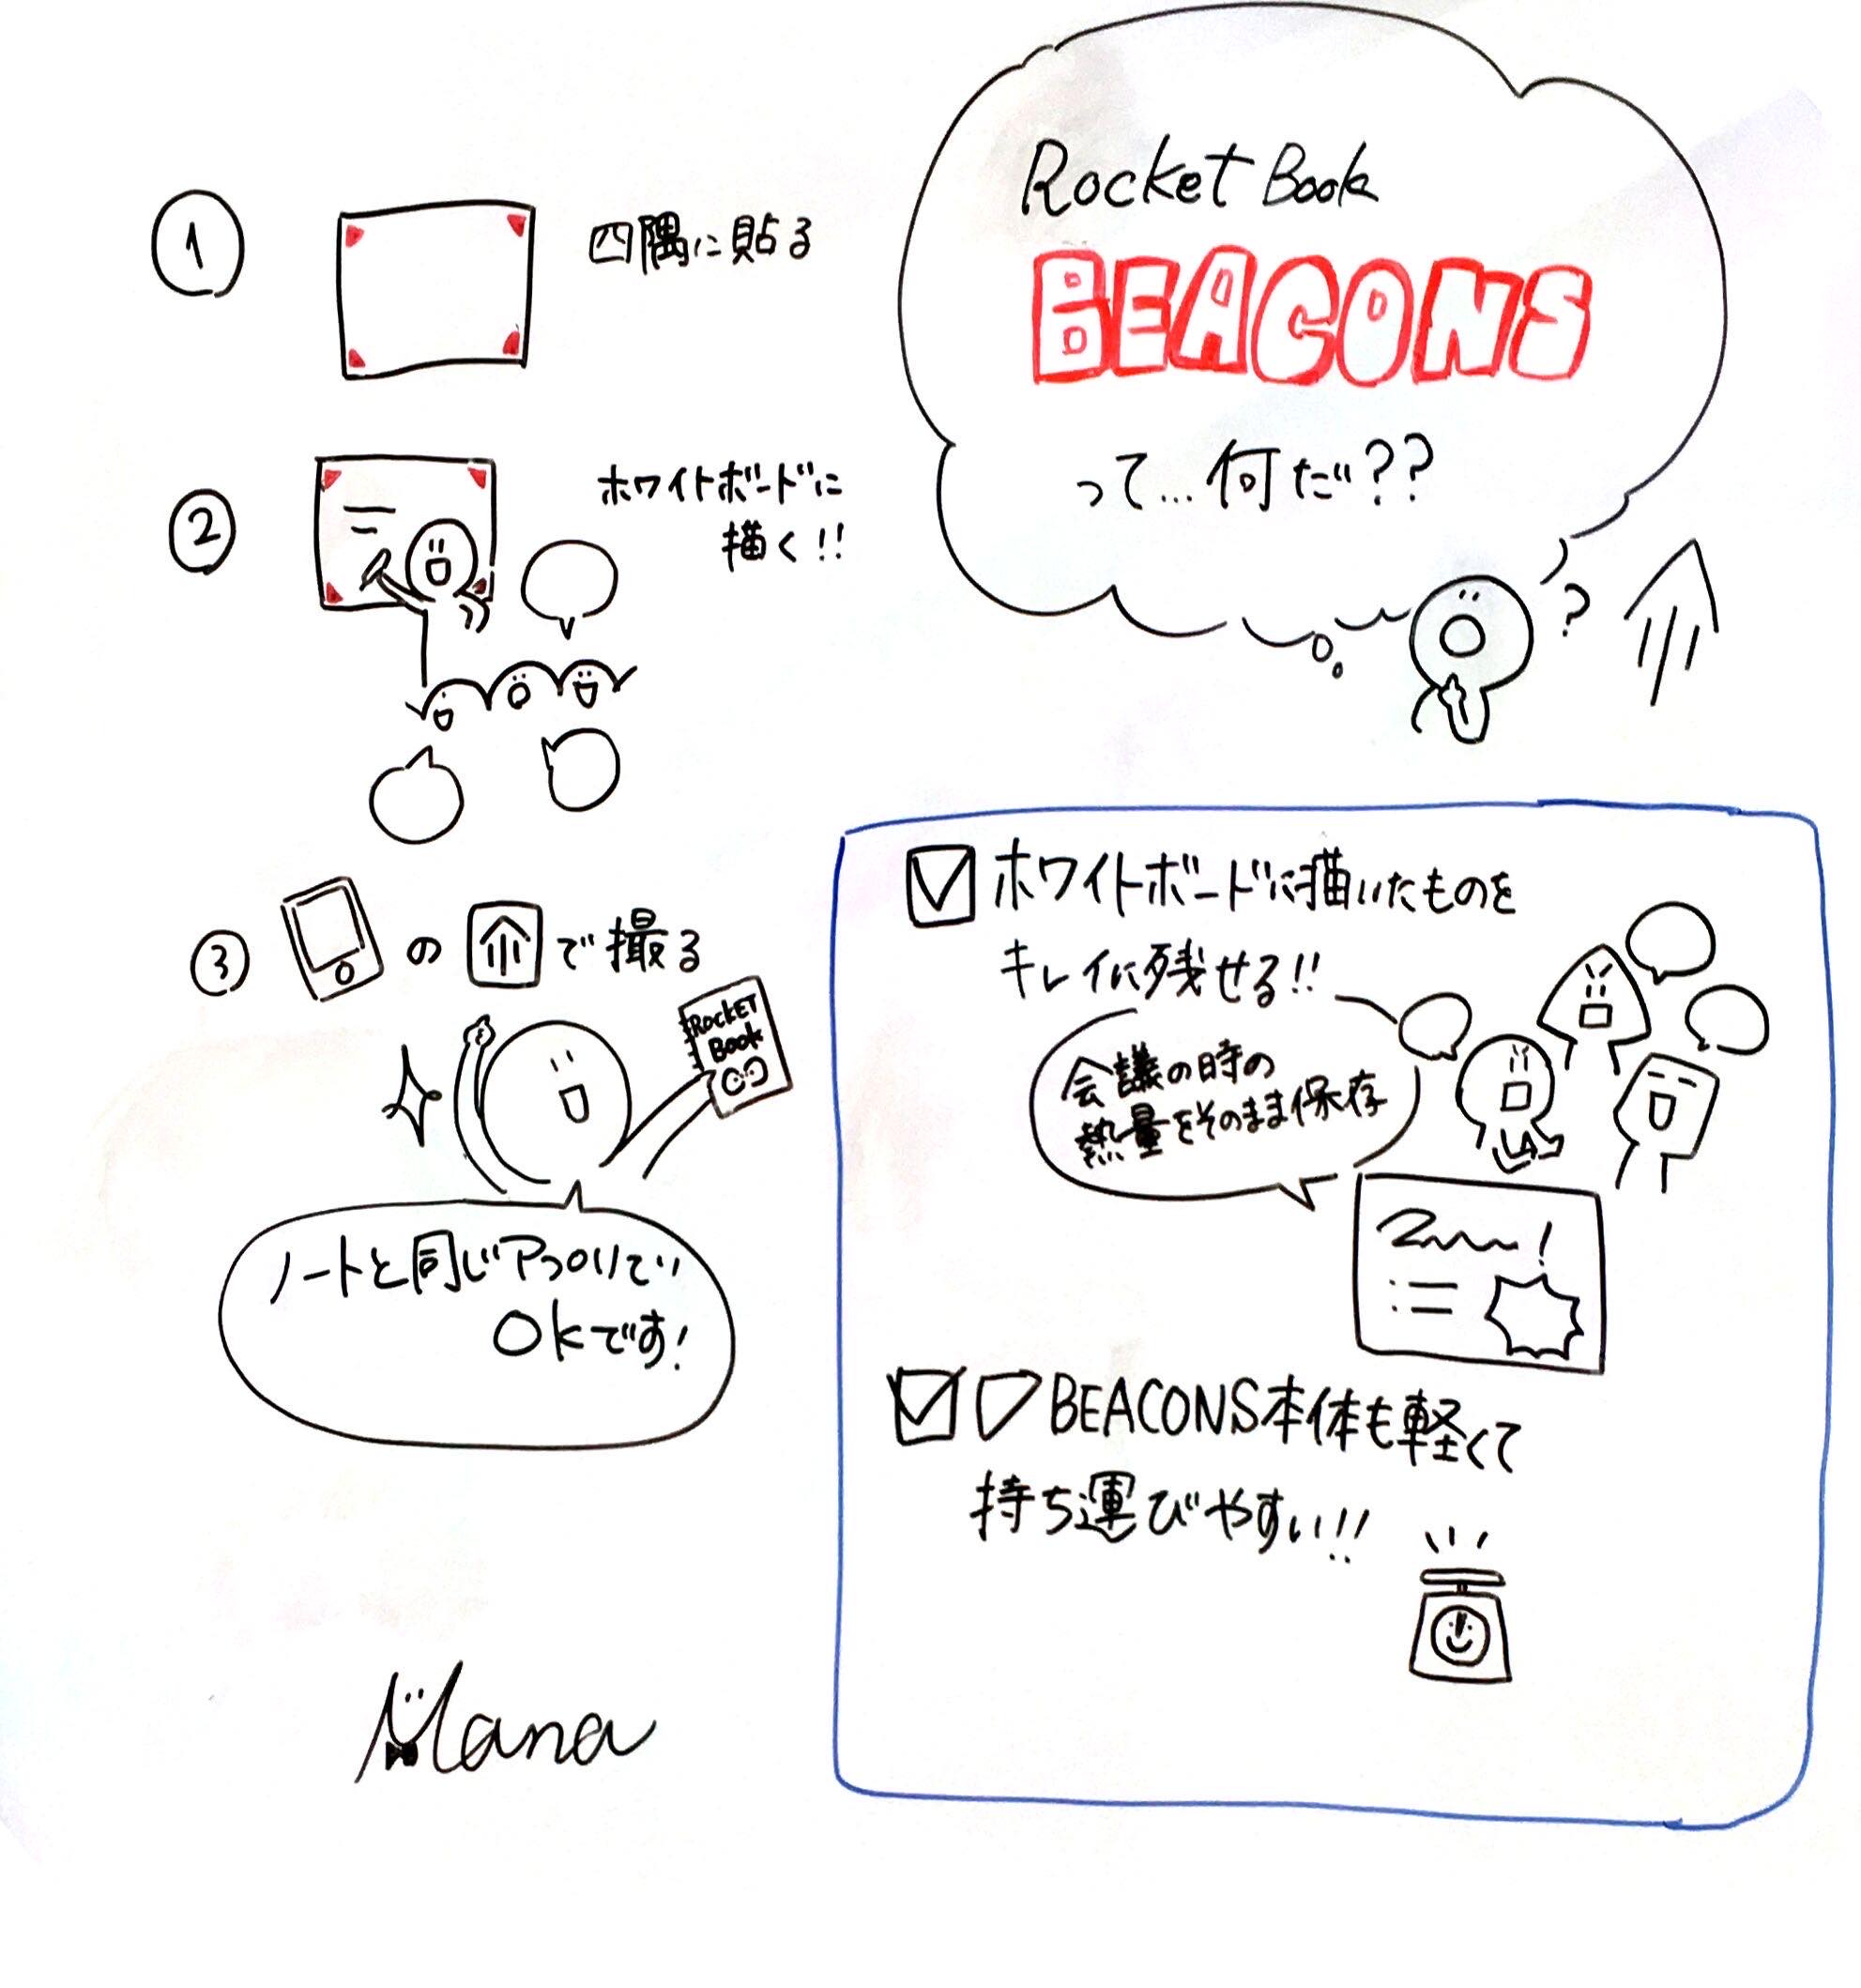 Rocket Book
BEACONS
って…何だ??
?
1
四隅に貼る
2
ホワイトボードに
描く!!
3
の
で撮る
ROCKET
Book
ノートと同じアプリで
OKです!
ホワイトボードに描いたものを
キレイに残せる!!
会議の時の
熱量をそのまま保存
BEACONS本体も軽くて
持ち運びやすい!!
Mana